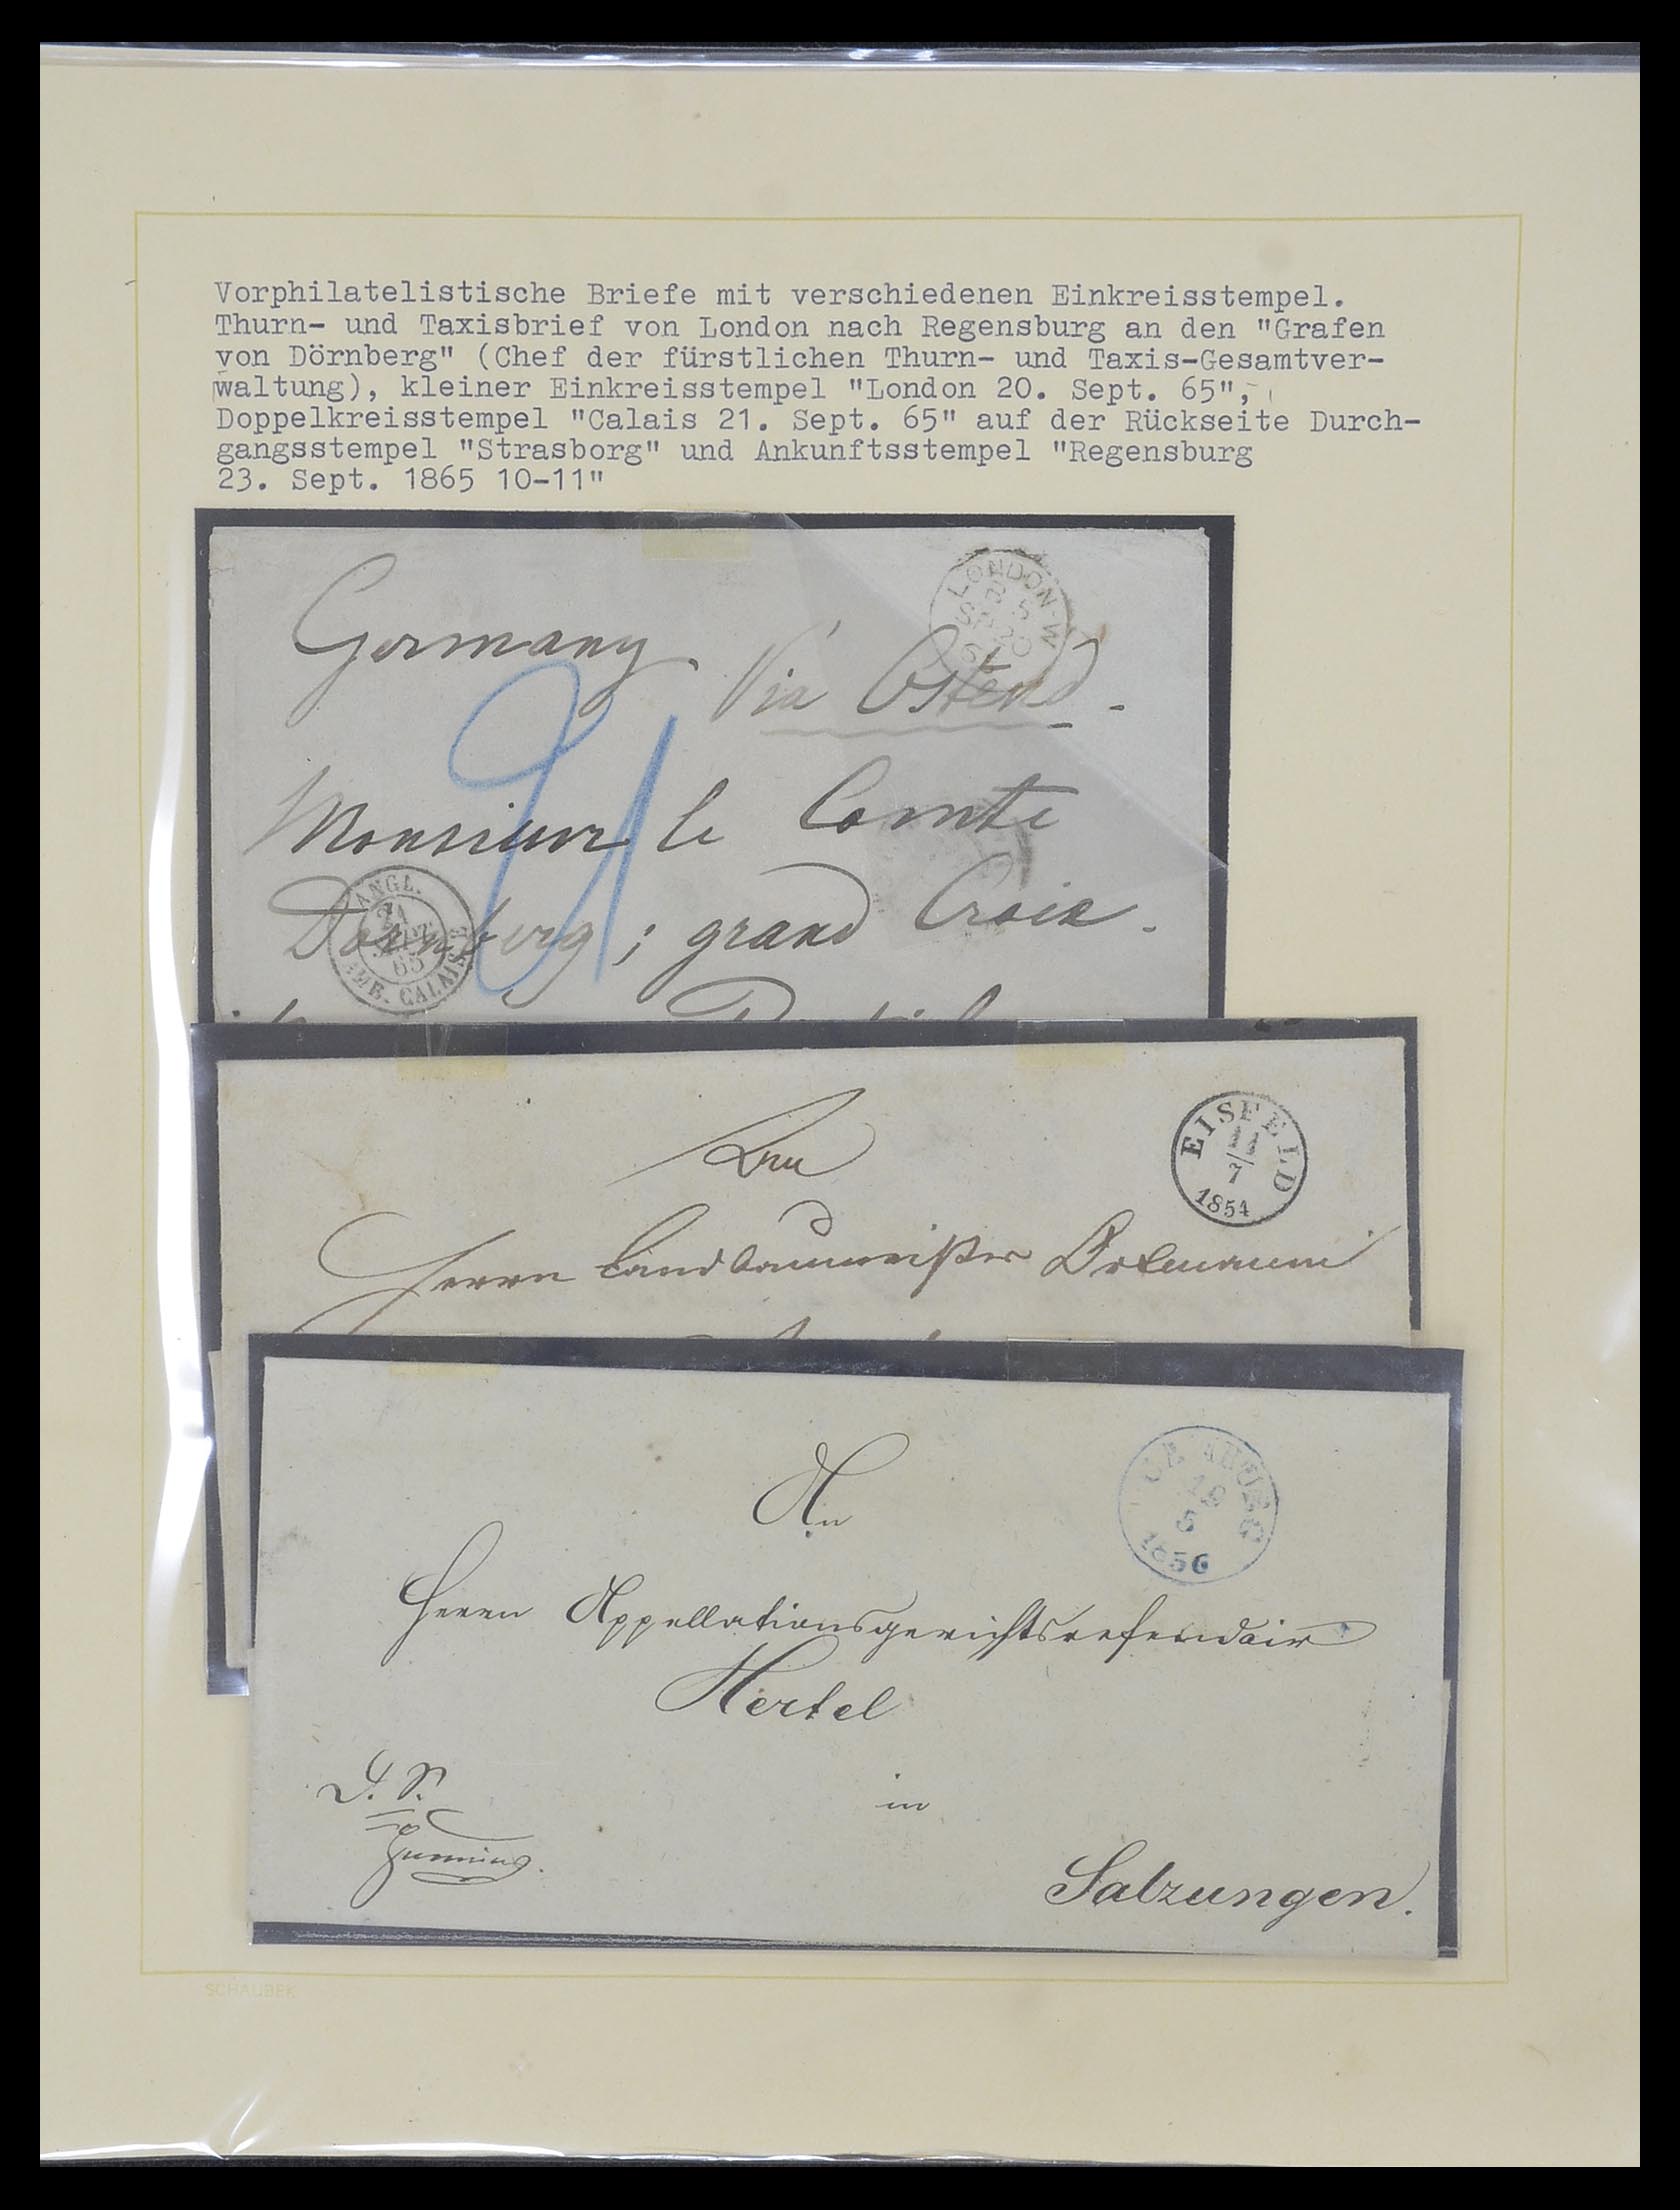 Vorphilatelistische Briefe mit verschiedenen Einkreisstempel.
Thurn- und Taxisbrief von London nach Regensburg an den "Grafen
von Dörnberg" (Chef der fürstlichen Thurn- und Taxis-Gesamtver-
waltung), kleiner Einkreisstempel "London 20. Sept. 65",
Doppelkreisstempel "Calais 21. Sept. 65" auf der Rückseite Durch-
gangsstempel "Strasborg" und Ankunftsstempel "Regensburg
23. Sept. 1865 10-11"
LONDON-W
5
SP 20
Germany.
Via Ostend -
21
Monsieur le Comte
Dörnberg; grand Croix -
ANGL.
21
SEPT
65
AMB. CALAIS
EISFELD
11
7
1854
Herrn Landbaumeister
19
5
1856
An
Herrn Appellationsgerichtsreferendair
Hertel
D. S.
in
Salzungen.
SCHAUBEK